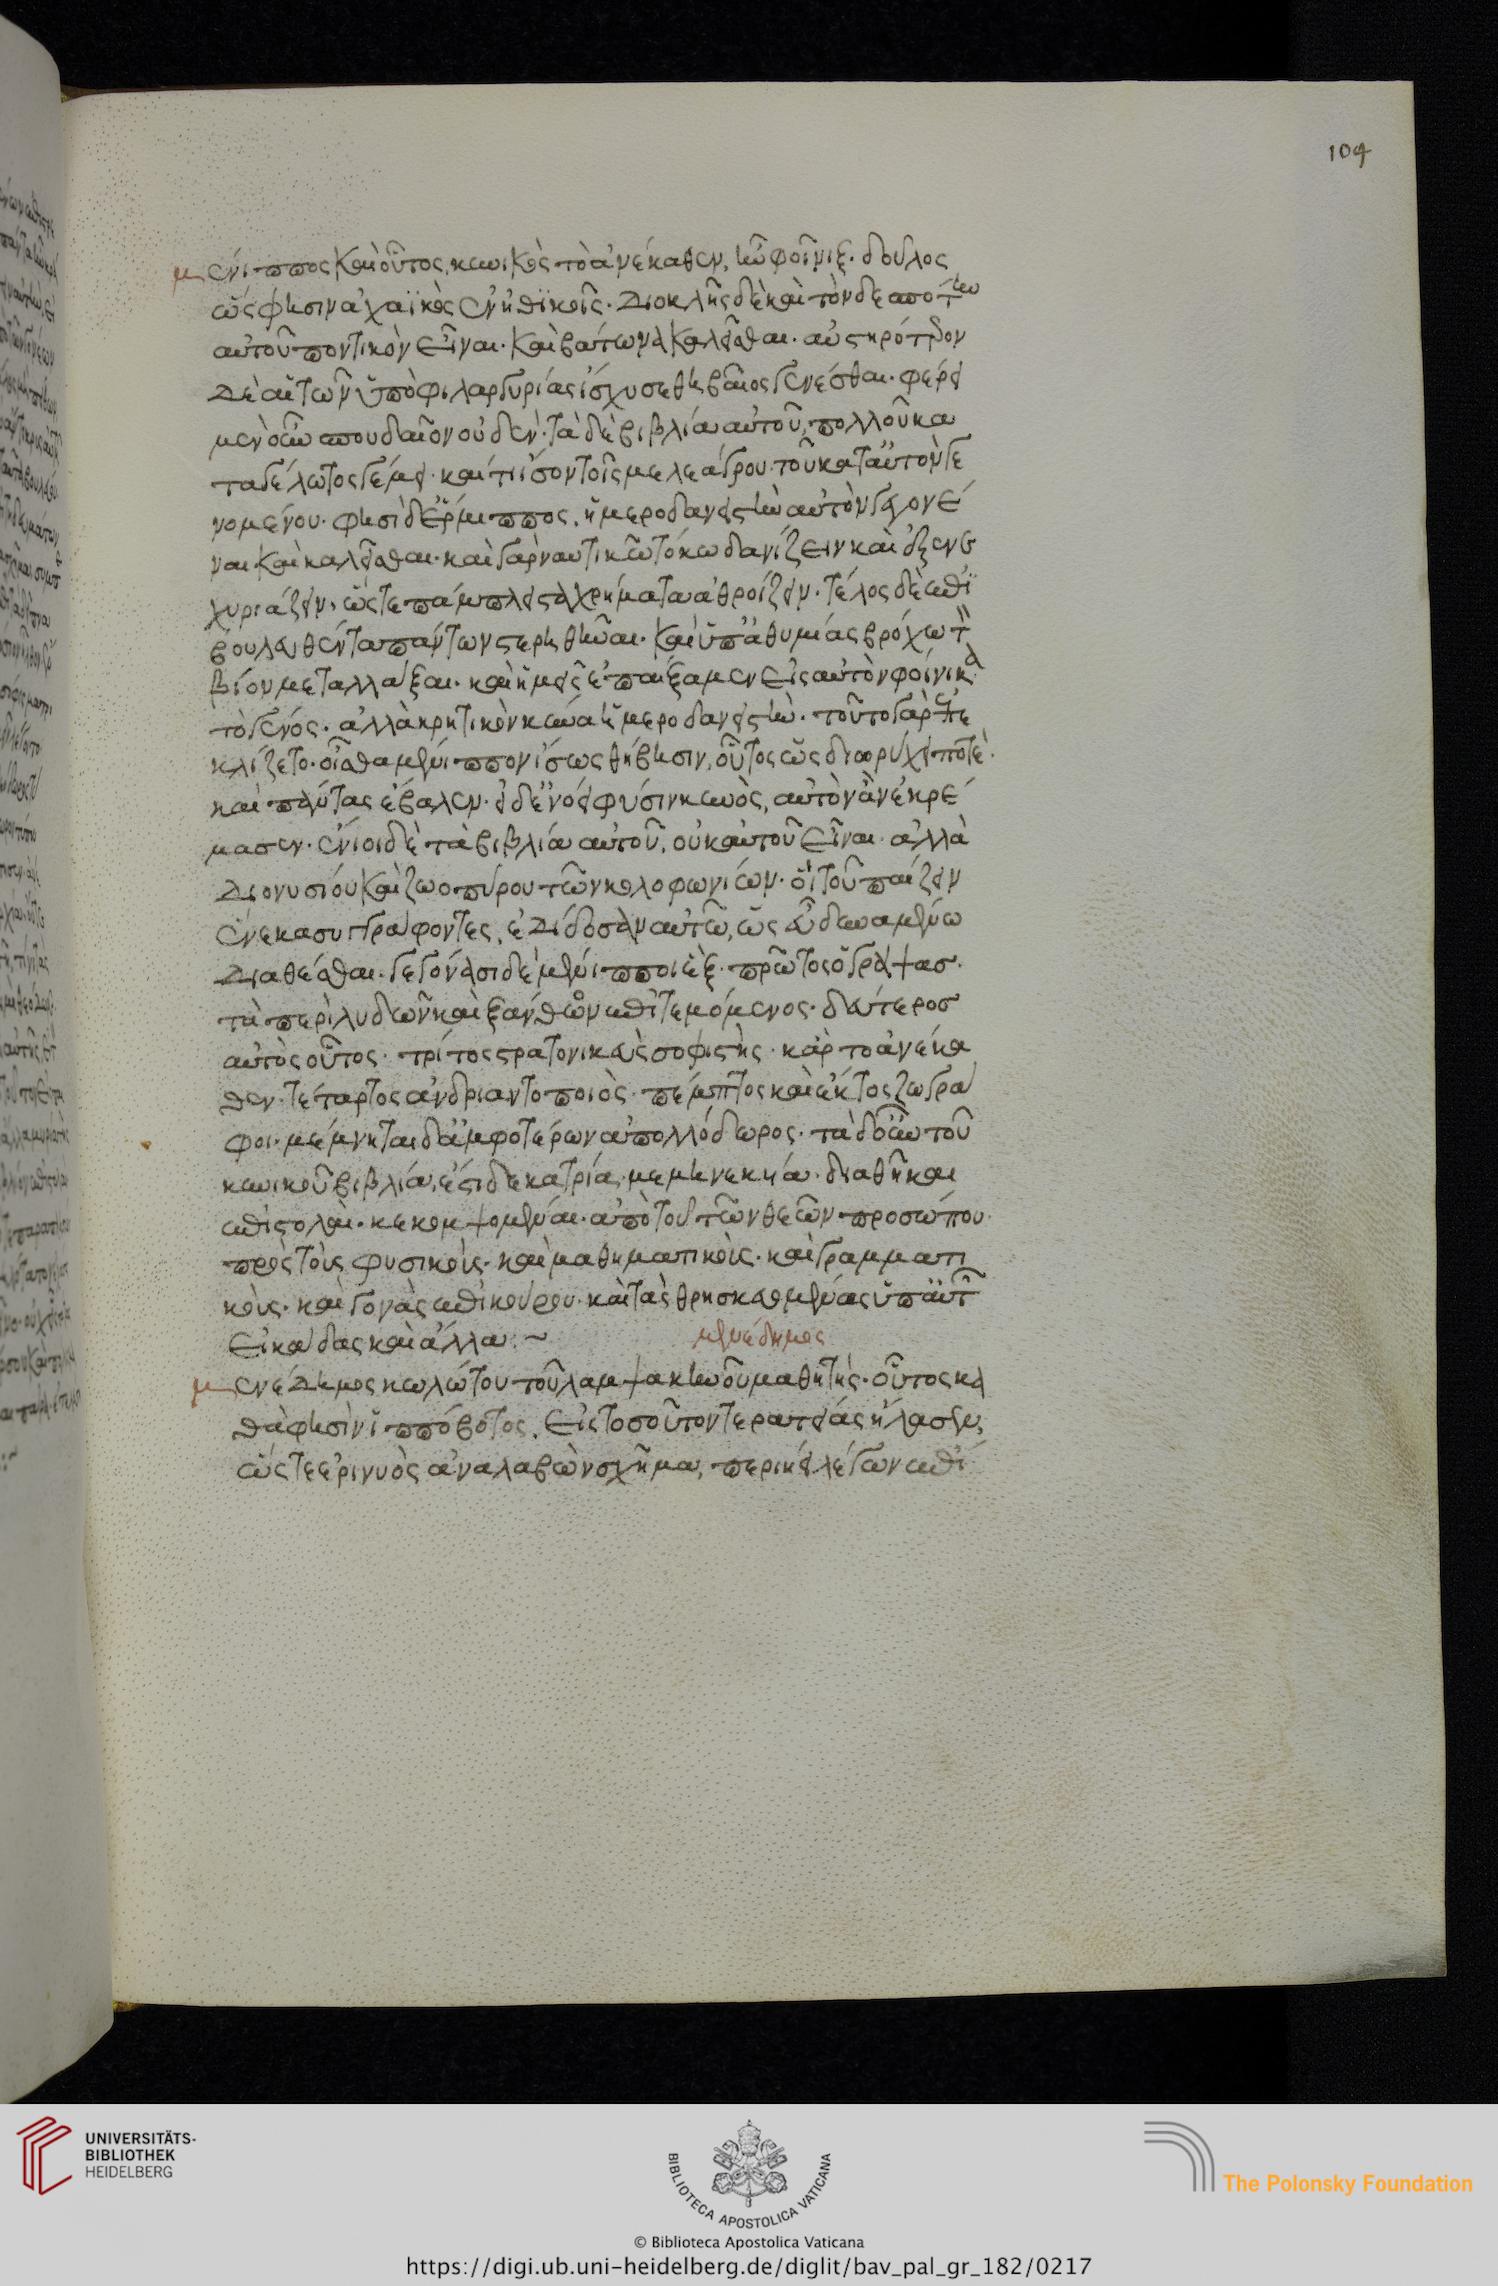 104
μενιππος καὶ οὗτος, κυνικὸς τὸ ἀνέκαθεν, ἦν φοῖνιξ. δοῦλος
ὥς φησιν ἀχαϊκὸς ἐν ἠθϊκοῖς. Διοκλῆς δὲ καὶ τὸν δεσπότην
αὐτοῦ ποντικὸν εἶναι. καὶ βάτωνα καλεῖσθαι. αὐστηρότερον
δὲ αἰτῶν ὑπὸ φιλαργυρίας ἴσχυσε θηβαῖος γενέσθαι. φέρει
μὲν οὖν σπουδαῖον οὐδέν. τὰ δὲ βιβλία αὐτοῦ, πολλοῦ κα
ταγέλωτος γέμει. καί τι ἴσον τοῖς μελεάγρου τοῦ κατ' αὐτὸν γε
νομένου. φησὶ δ' ἕρμιππος, ἡμεροδανειστὴν αὐτὸν γεγονέ
ναι καὶ καλεῖσθαι. καὶ γὰρ ναυτικῶ τόκω δανίζειν καὶ ἐξενε
χυριάζειν, ὥστε πάμπλειστα χρήματα ἀθροίζειν. τέλος δὲ ἐπϊ
βουλευθέντα πάντων στερηθῆναι. καὶ ὑπ' ἀθυμίας βρόχω τὸν
βίον μεταλλάξαι. καὶ ἡμεῖς ἐπαίξαμεν εἰς αὐτὸν φοίνικα
τὸ γένος. ἀλλὰ κρητικὸν κύνα ἡμεροδανειστὴν. τοῦτο γὰρ ἐπε
κλίζετο. οἶσθα μένιππον ἴσως θήβησιν, οὗτος ὡς διωρύχει ποτὲ.
καὶ πάντας ἔβαλεν. οὐδ' ἐνόει φύσιν κυνὸς, αὐτὸν ἀνεκρέ
μασεν. ἔνιοι δὲ τὰ βιβλία αὐτοῦ, οὐκ αὐτοῦ εἶναι. ἀλλὰ
Διονυσίου καὶ ζωοπύρου τῶν κολοφωνίων. οἳ τοῦ παίζειν
ἕνεκα συγγράφοντες, ἐδίδοσαν αὐτῶ, ὡς εὖ δυναμένω
διαθέσθαι. γεγόνασι δὲ μένιπποι ἓξ. πρῶτος ὁ γράψασ
τὰ περὶ λυδῶν καὶ ξάνθον ἐπιτεμόμενος. δεύτεροσ
αὐτὸς οὗτος. τρίτος στρατονικεὺς σοφιστὴς. κὰρ τὸ ἀνέκα
θεν. τέταρτος ἀνδριαντοποιὸς. πέμπτος καὶ ἕκτος ζωγρά
φοι. μέμνηται δ' ἀμφοτέρων ἀπολλόδωρος. τὰ δ' οὖν τοῦ
κυνικοῦ βιβλία, ἐστὶ δεκατρία. μεμηνεκηά. διαθῆκαι
ἐπιστολαὶ. κεκομψομέναι. ἀπὸ τοῦ τῶν θεῶν προσώπου
πρὸς τοὺς φυσικοὺς. καὶ μαθηματικοὺς. καὶ γραμματι
κοὺς. καὶ γονὰς ἐπικούρου. καὶ τὰς θρησκευομένας ὑπ' αὐτῶν
εἰκάδας καὶ ἄλλα. ~
μενέδημος
μενέδημος κωλώτου τοῦ λαμψακηνοῦ μαθητὴς. οὗτος κα
θά φησὶν ἱππόβοτος, εἰς τοσοῦτον τερατείας ἤλασεν,
ὥστε ἐρινυὸς ἀναλαβὼν σχῆμα, περιήει λέγων ἐπί
UNIVERSITÄTS-
BIBLIOTHEK
HEIDELBERG
BIBLIOTECA APOSTOLICA VATICANA
The Polonsky Foundation
© Biblioteca Apostolica Vaticana
https://digi.ub.uni-heidelberg.de/diglit/bav_pal_gr_182/0217